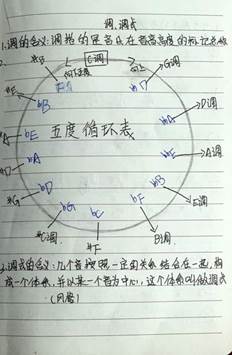 调.调式
1.调的含义:调指的是音乐在音高高度的标记总称
2.
C调
G调
D调
A调
E调
B调
#F
#C调
#G
#D
bE
bB
bA
bD
bG
bC
bF
五度循环表
3.调式的含义:几个音按照一定的关系结合在一起,构
成一个体系,并以某一个音为中心,这个体系叫做调式
(风格)